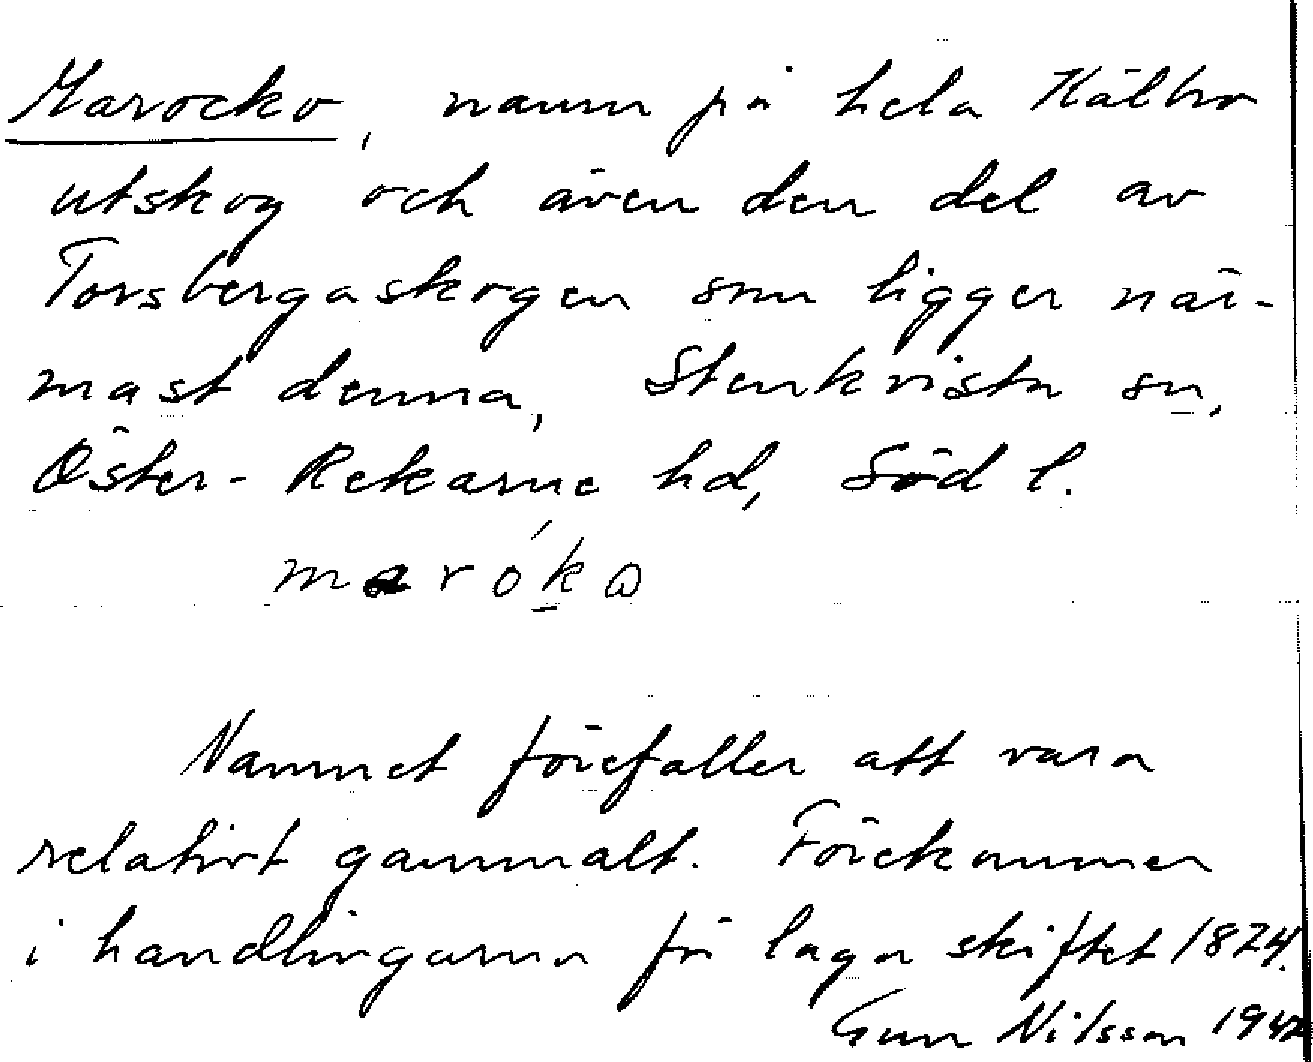 Marocko, namn på hela Kälbro
utskog och även den del av
Torsbergaskogen som ligger när-
mast denna, Stenkvista sn,
Öster-Rekarne hd, Söd l.
maróka
Namnet förefaller att vara
relativt gammalt. Förekommer
i handlingarna på laga skiftet 1824.
Gun Nilsson